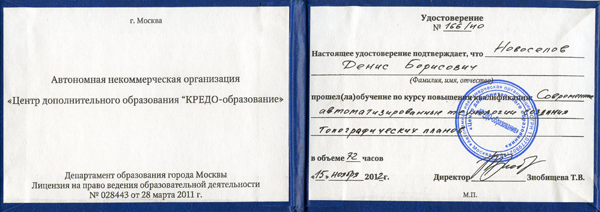 г. Москва
Автономная некоммерческая организация
«Центр дополнительного образования "КРЕДО-образование"
Департамент образования города Москвы
Лицензия на право ведения образовательной деятельности
№ 028443 от 28 марта 2011 г.
Удостоверение
№ 166/ПО
Настоящее удостоверение подтверждает, что Новоселов
Денис Борисович
(Фамилия, имя, отчество)
прошел(ла) обучение по курсу повышения квалификации: Современные
автоматизированные технологии создания
топографических планов
в объеме 72 часов
«15» ноября 2012 г.
Директор Знобищева Т.В.
М.П.